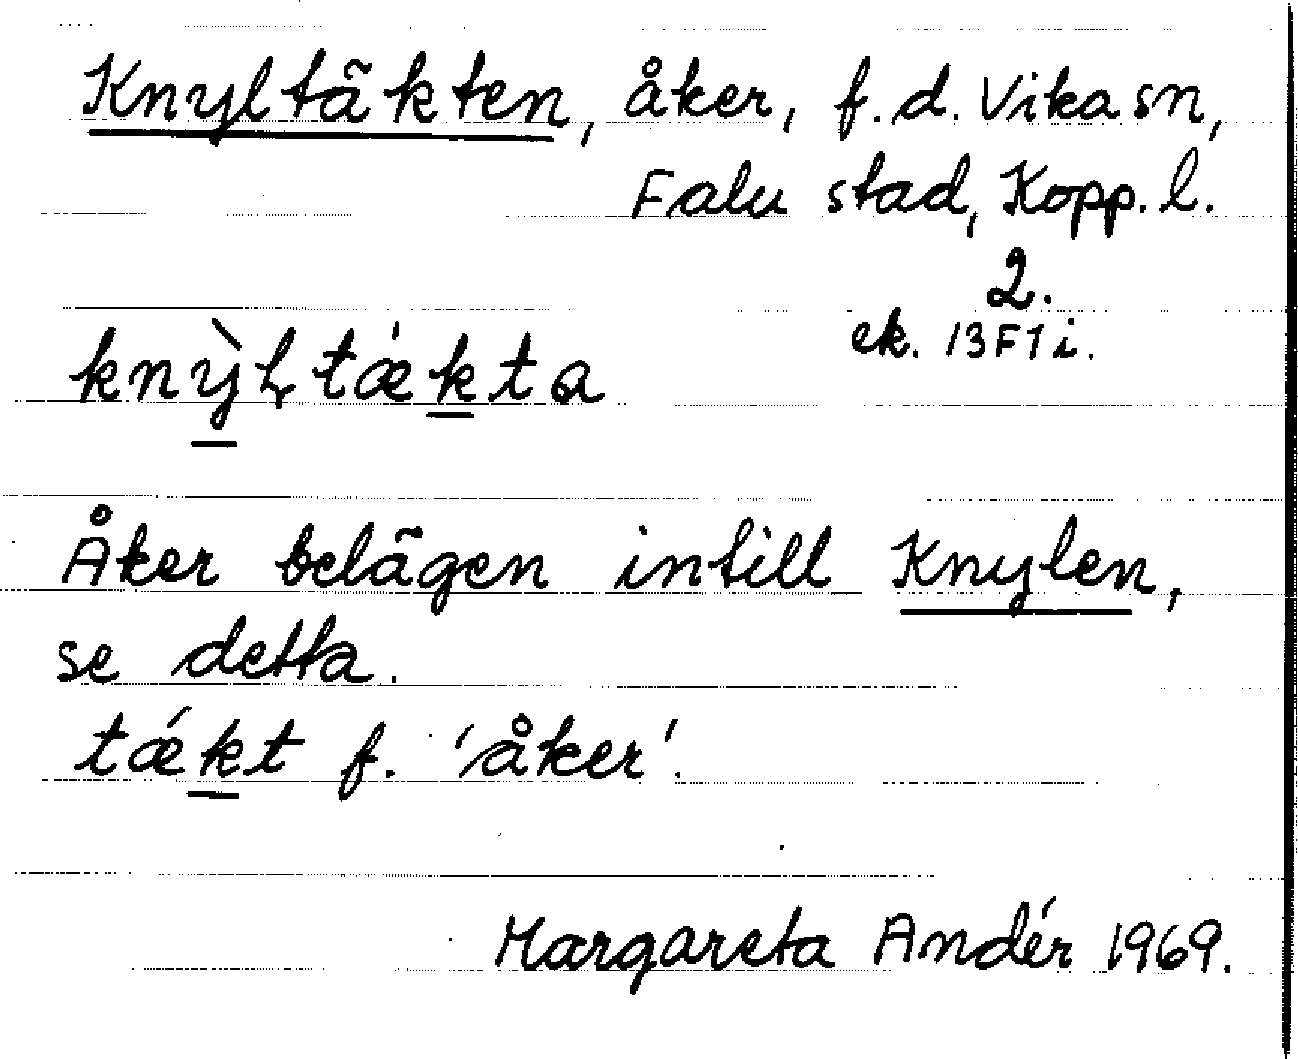 Knyltäkten, åker, f.d. Vika sn,
Falu stad, Kopp. l.
2.
ek. 13F1i.
knỳɫtǽkta
Åker belägen intill Knylen,
se detta.
tǽkt f. 'åker'.
Margareta Andér 1969.